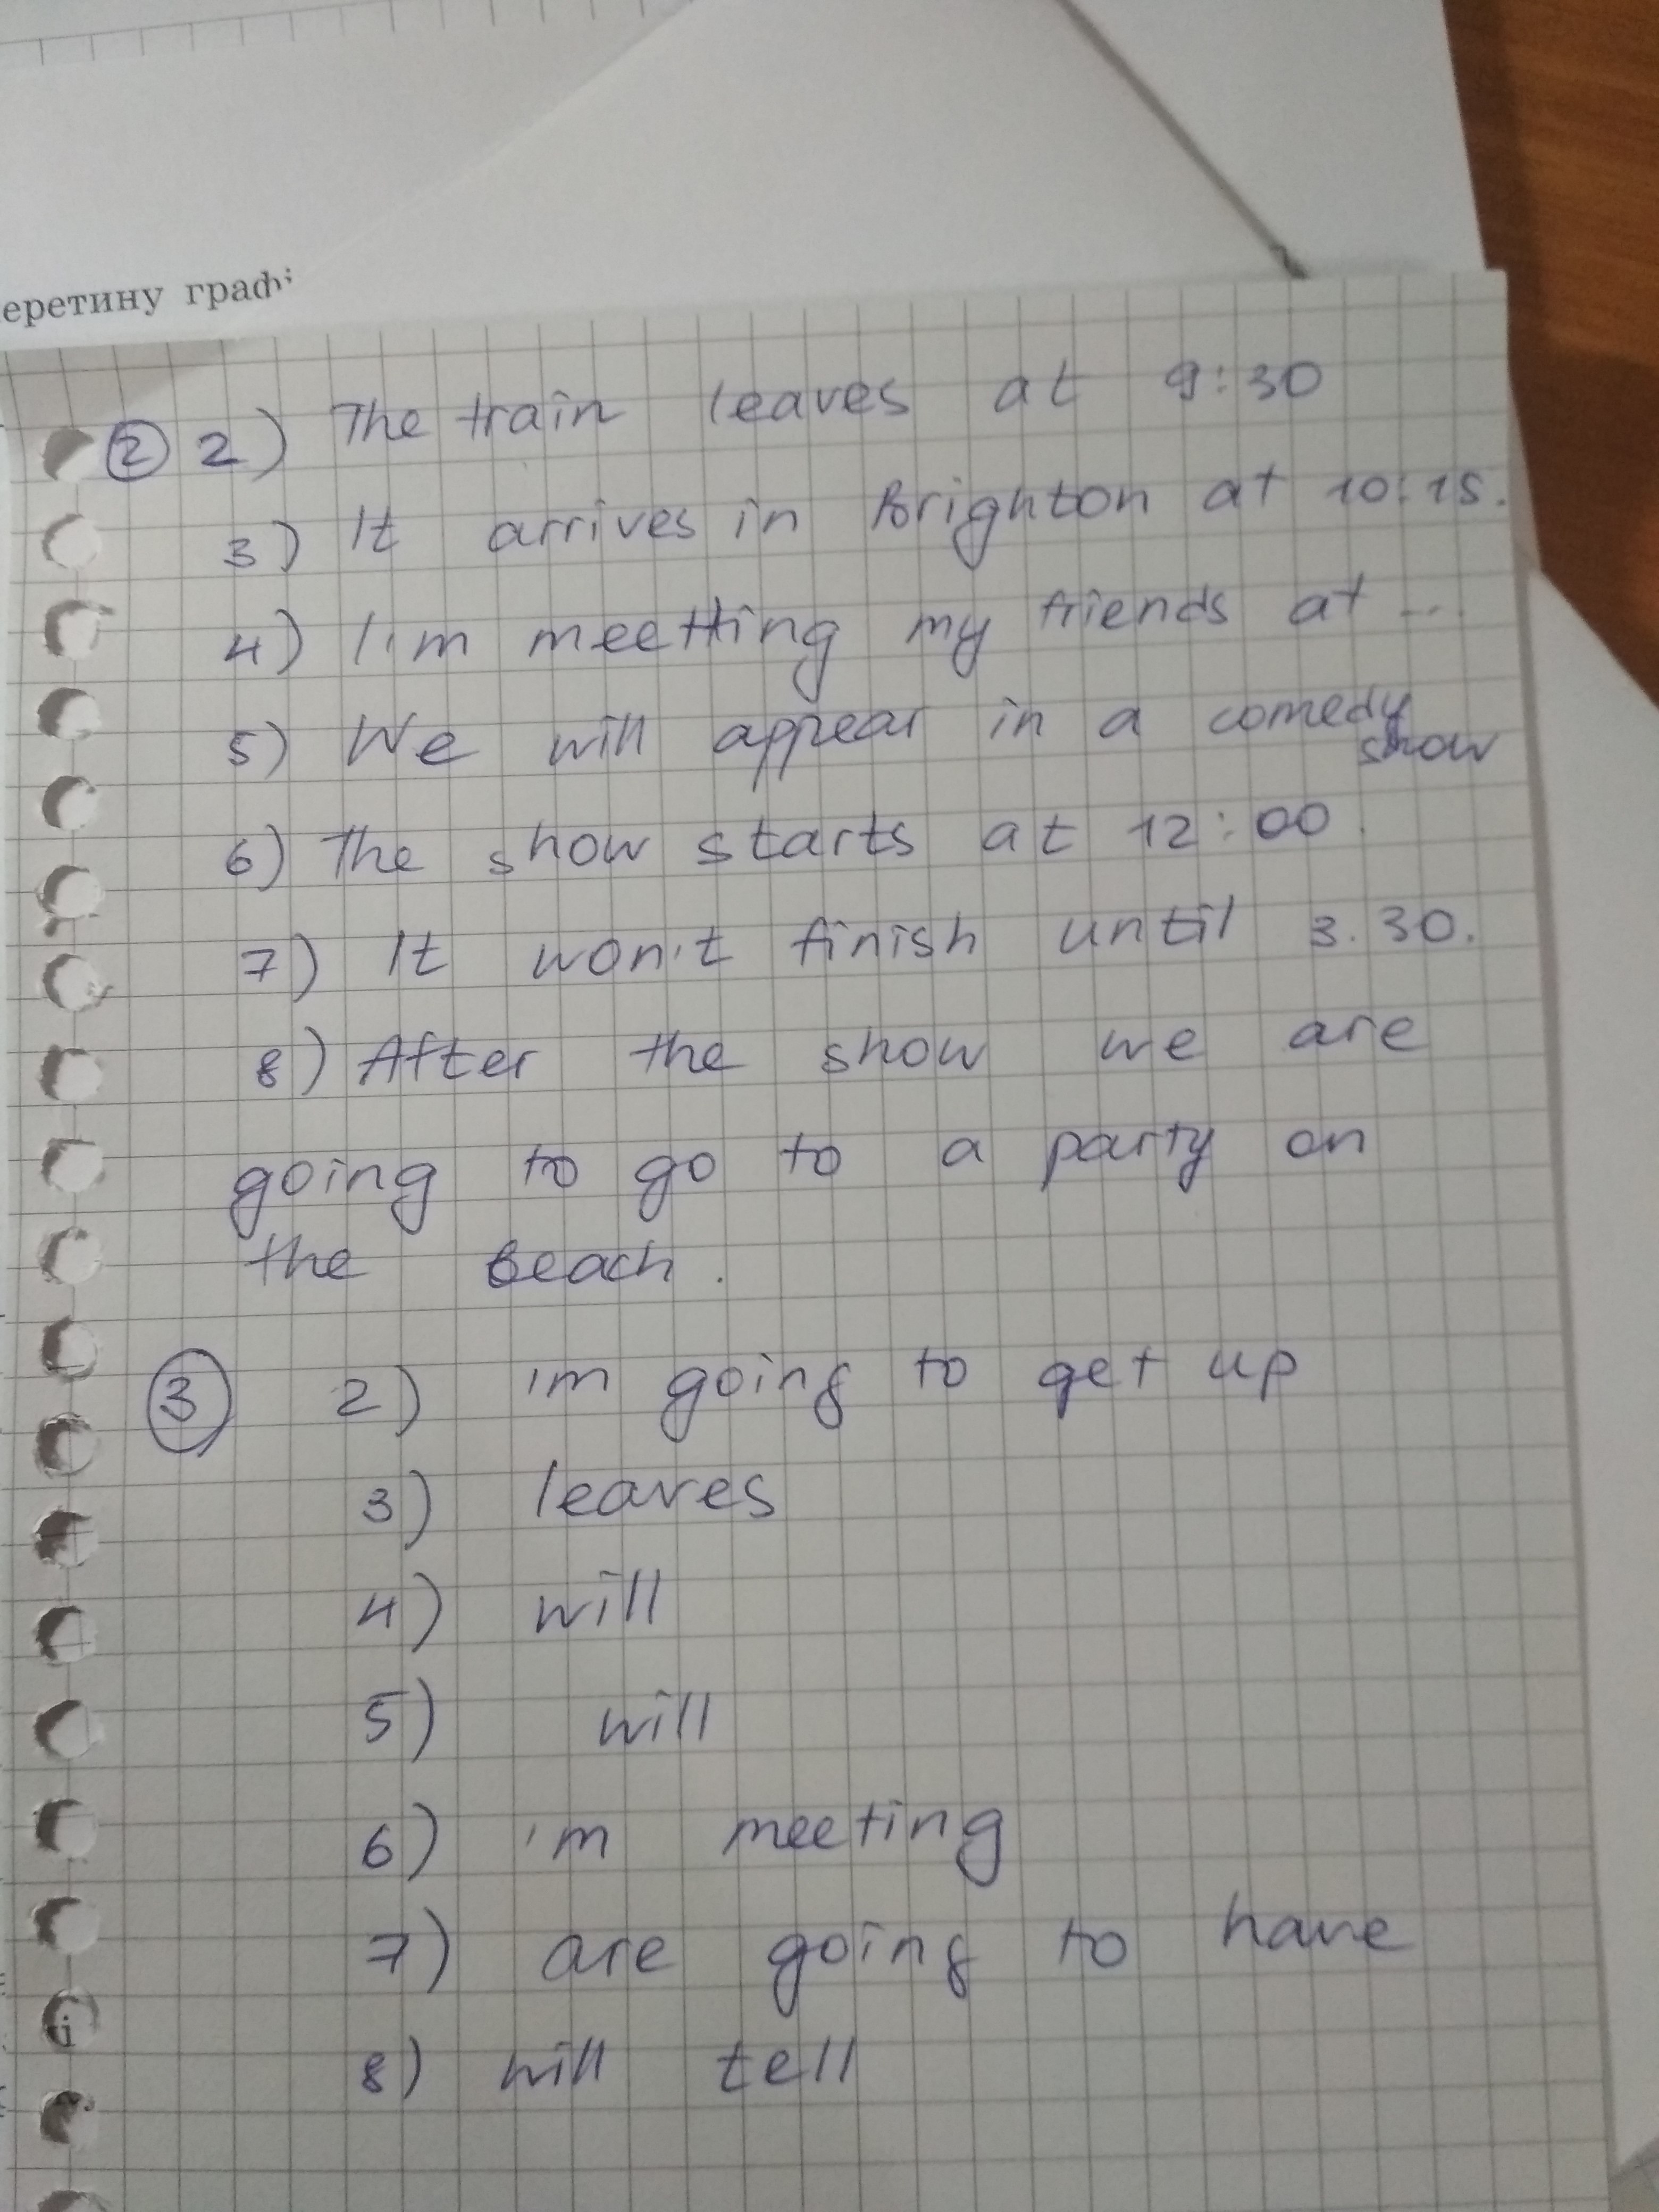 еретину граф
② 2) The train leaves at 9:30
3) It arrives in Brighton at 10:15.
4) I'm meetting my friends at ...
5) We will appear in a comedy
show
6) The show starts at 12:00.
7) It won't finish until 3.30.
8) After the show we are
going to go to a party on
the beach.
③ 2) 'm going to get up
3) leaves
4) will
5) will
6) 'm meeting
7) are going to have
8) will tell